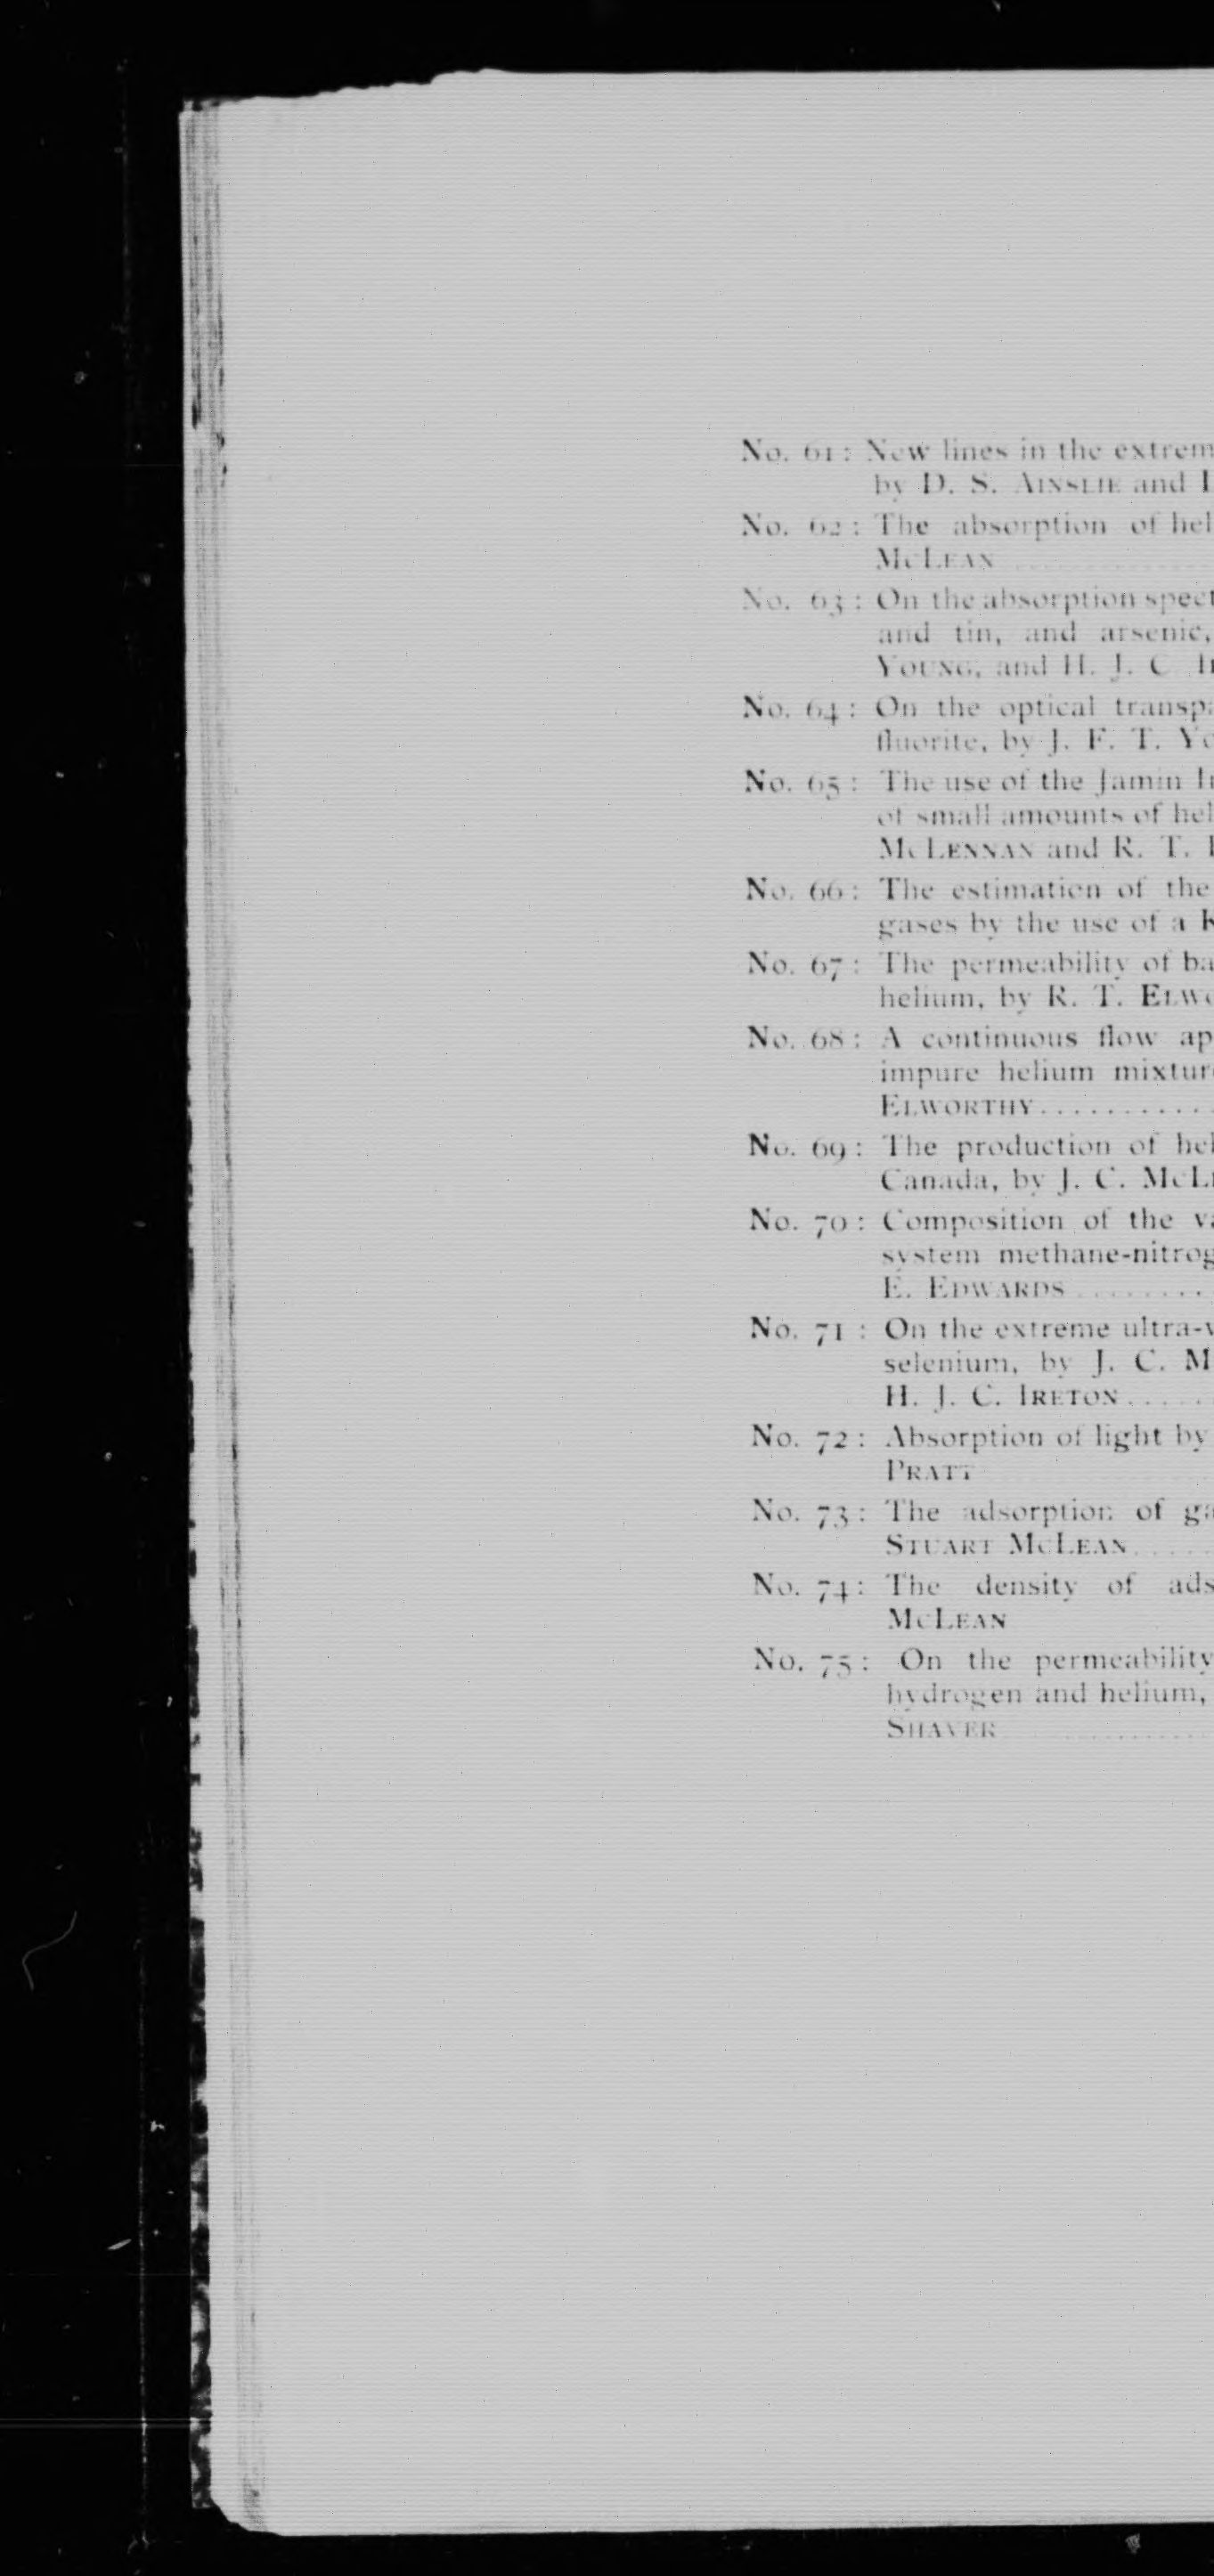 No. 61: New lines in the extrem
by D. S. AINSLIE and
No. 62: The absorption of hel
McLEAN
No. 63: On the absorption spect
and tin, and arsenic,
YOUNG, and H. J. C.
No. 64: On the optical transpa
fluorite, by J. F. T. Yo
No. 65: The use of the Jamin
of small amounts of hel
McLENNAN and R. T.
No. 66: The estimation of the
gases by the use of a
No. 67: The permeability of ba
helium, by R. T. ELWO
No. 68: A continuous flow ap
impure helium mixture
ELWORTHY..........
No. 69: The production of hel
Canada, by J. C. McL
No. 70: Composition of the va
system methane-nitrog
E. EDWARDS ........
No. 71: On the extreme ultra-v
selenium, by J. C. M
H. J. C. IRETON.....
No. 72: Absorption of light by
PRATT
No. 73: The adsorption of ga
STUART McLEAN.....
No. 74: The density of ads
McLEAN
No. 75: On the permeability
hydrogen and helium,
SHAVER ..........